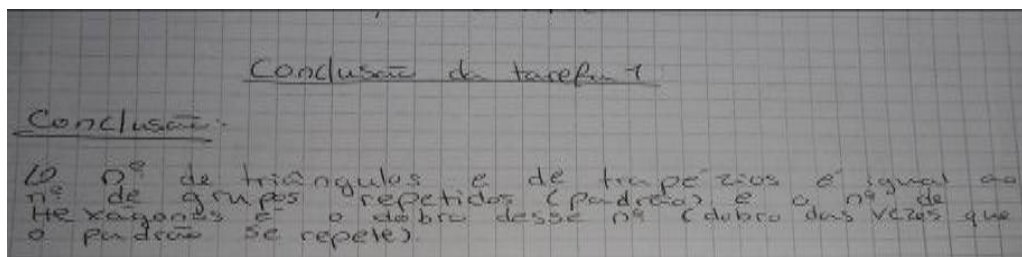 Conclusão da tarefa 1
Conclusão:
O nº de triângulos e de trapézios é igual ao
nº de grupos repetidos (padrão) e o nº de
Hexagones é o dobro desse nº (dobro das vezes que
o padrão se repete).